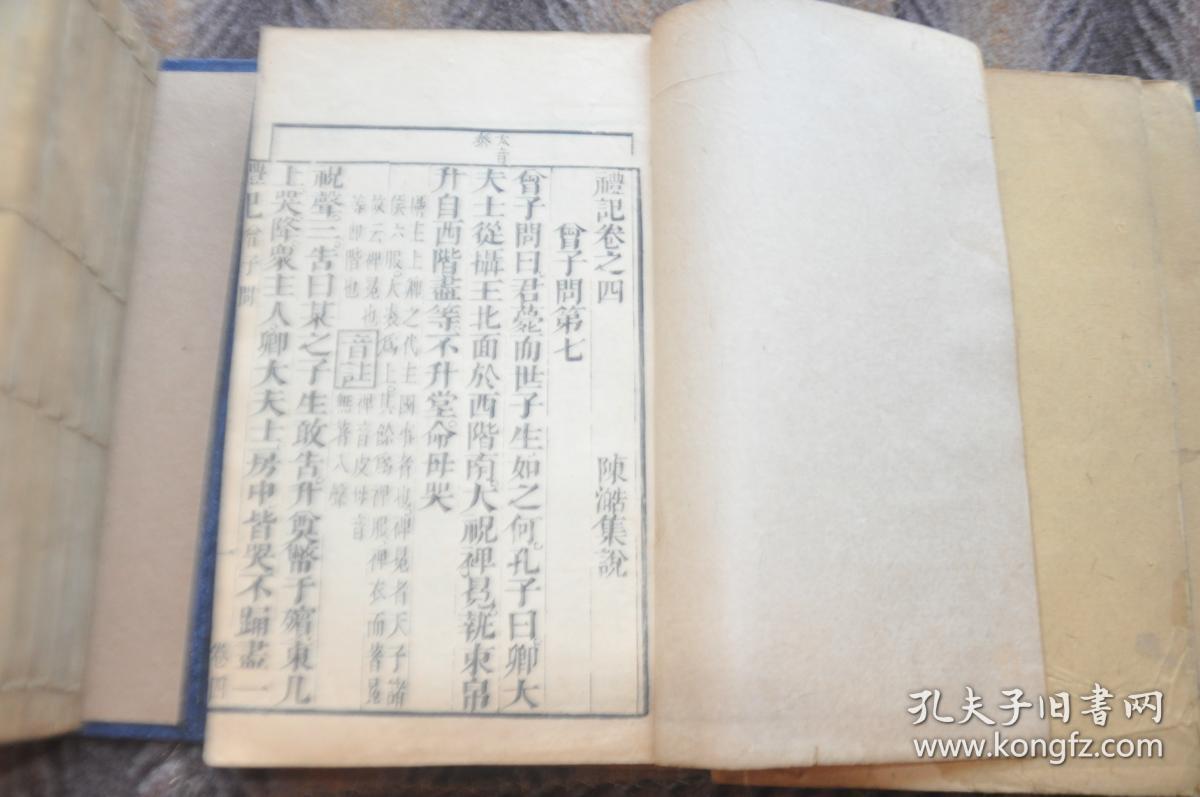 禮記卷之四
陳澔集說
曾子問第七
曾子問曰君薨而世子生如之何孔子曰卿大
夫士從攝主北面於西階南大祝裨冕執束帛
升自西階盡等不升堂命毋哭
攝主上卿之代主國事者也裨冕者天子諸
侯六服大裘爲上其餘爲裨服裨衣而著冕
故云裨冕也
音註
裨音皮毋音
無著入聲
等卽階也
祝聲三告曰某之子生敢告升奠幣于殯東几
上哭降衆主人卿大夫士房中皆哭不踊盡一
大音
泰
禮記曾子問
一
卷四
孔夫子旧书网
www.kongfz.com